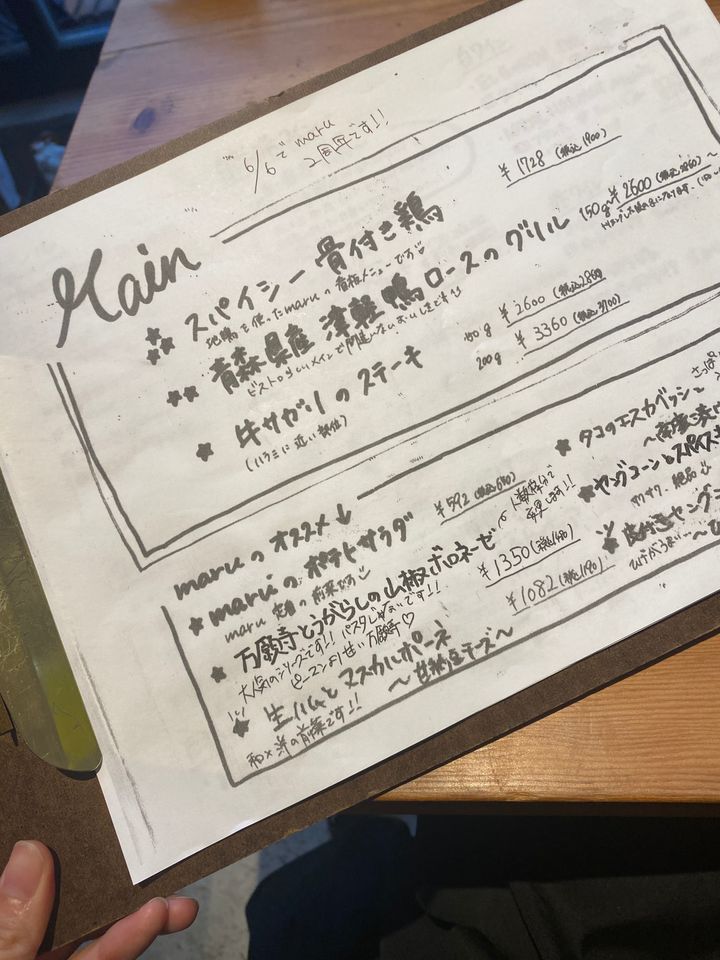 6/6で maru
2周年です!!
Main
スパイシー骨付き鶏
¥1728 (税込1900)
地鶏を使ったmaruの看板メニューです
青森県産 津軽鴨ロースのグリル
150g ¥2600 (税込2860)〜
牛サガリのステーキ
(ハラミに近い部位)
¥2600 (税込2860)
200g ¥3360 (税込3700)
maruのオススメ↓
maruのポテトサラダ
¥592 (税込650)
maru 定番の前菜です
人数分で
万願寺とうがらしの山椒ボロネーゼ
¥1350 (税込1490)
大人気のシリーズです!! パスタじゃないです!!
ピーマンより甘い万願寺♡
生ハムとマスカルポーネ
〜甘納豆チーズ〜
¥1082 (税込1190)
和×洋の前菜です!!
タコのエスカベッシュ
ヤングコーンとスパイス
サクサク 絶品
皮付きヤング
ひげがうまい